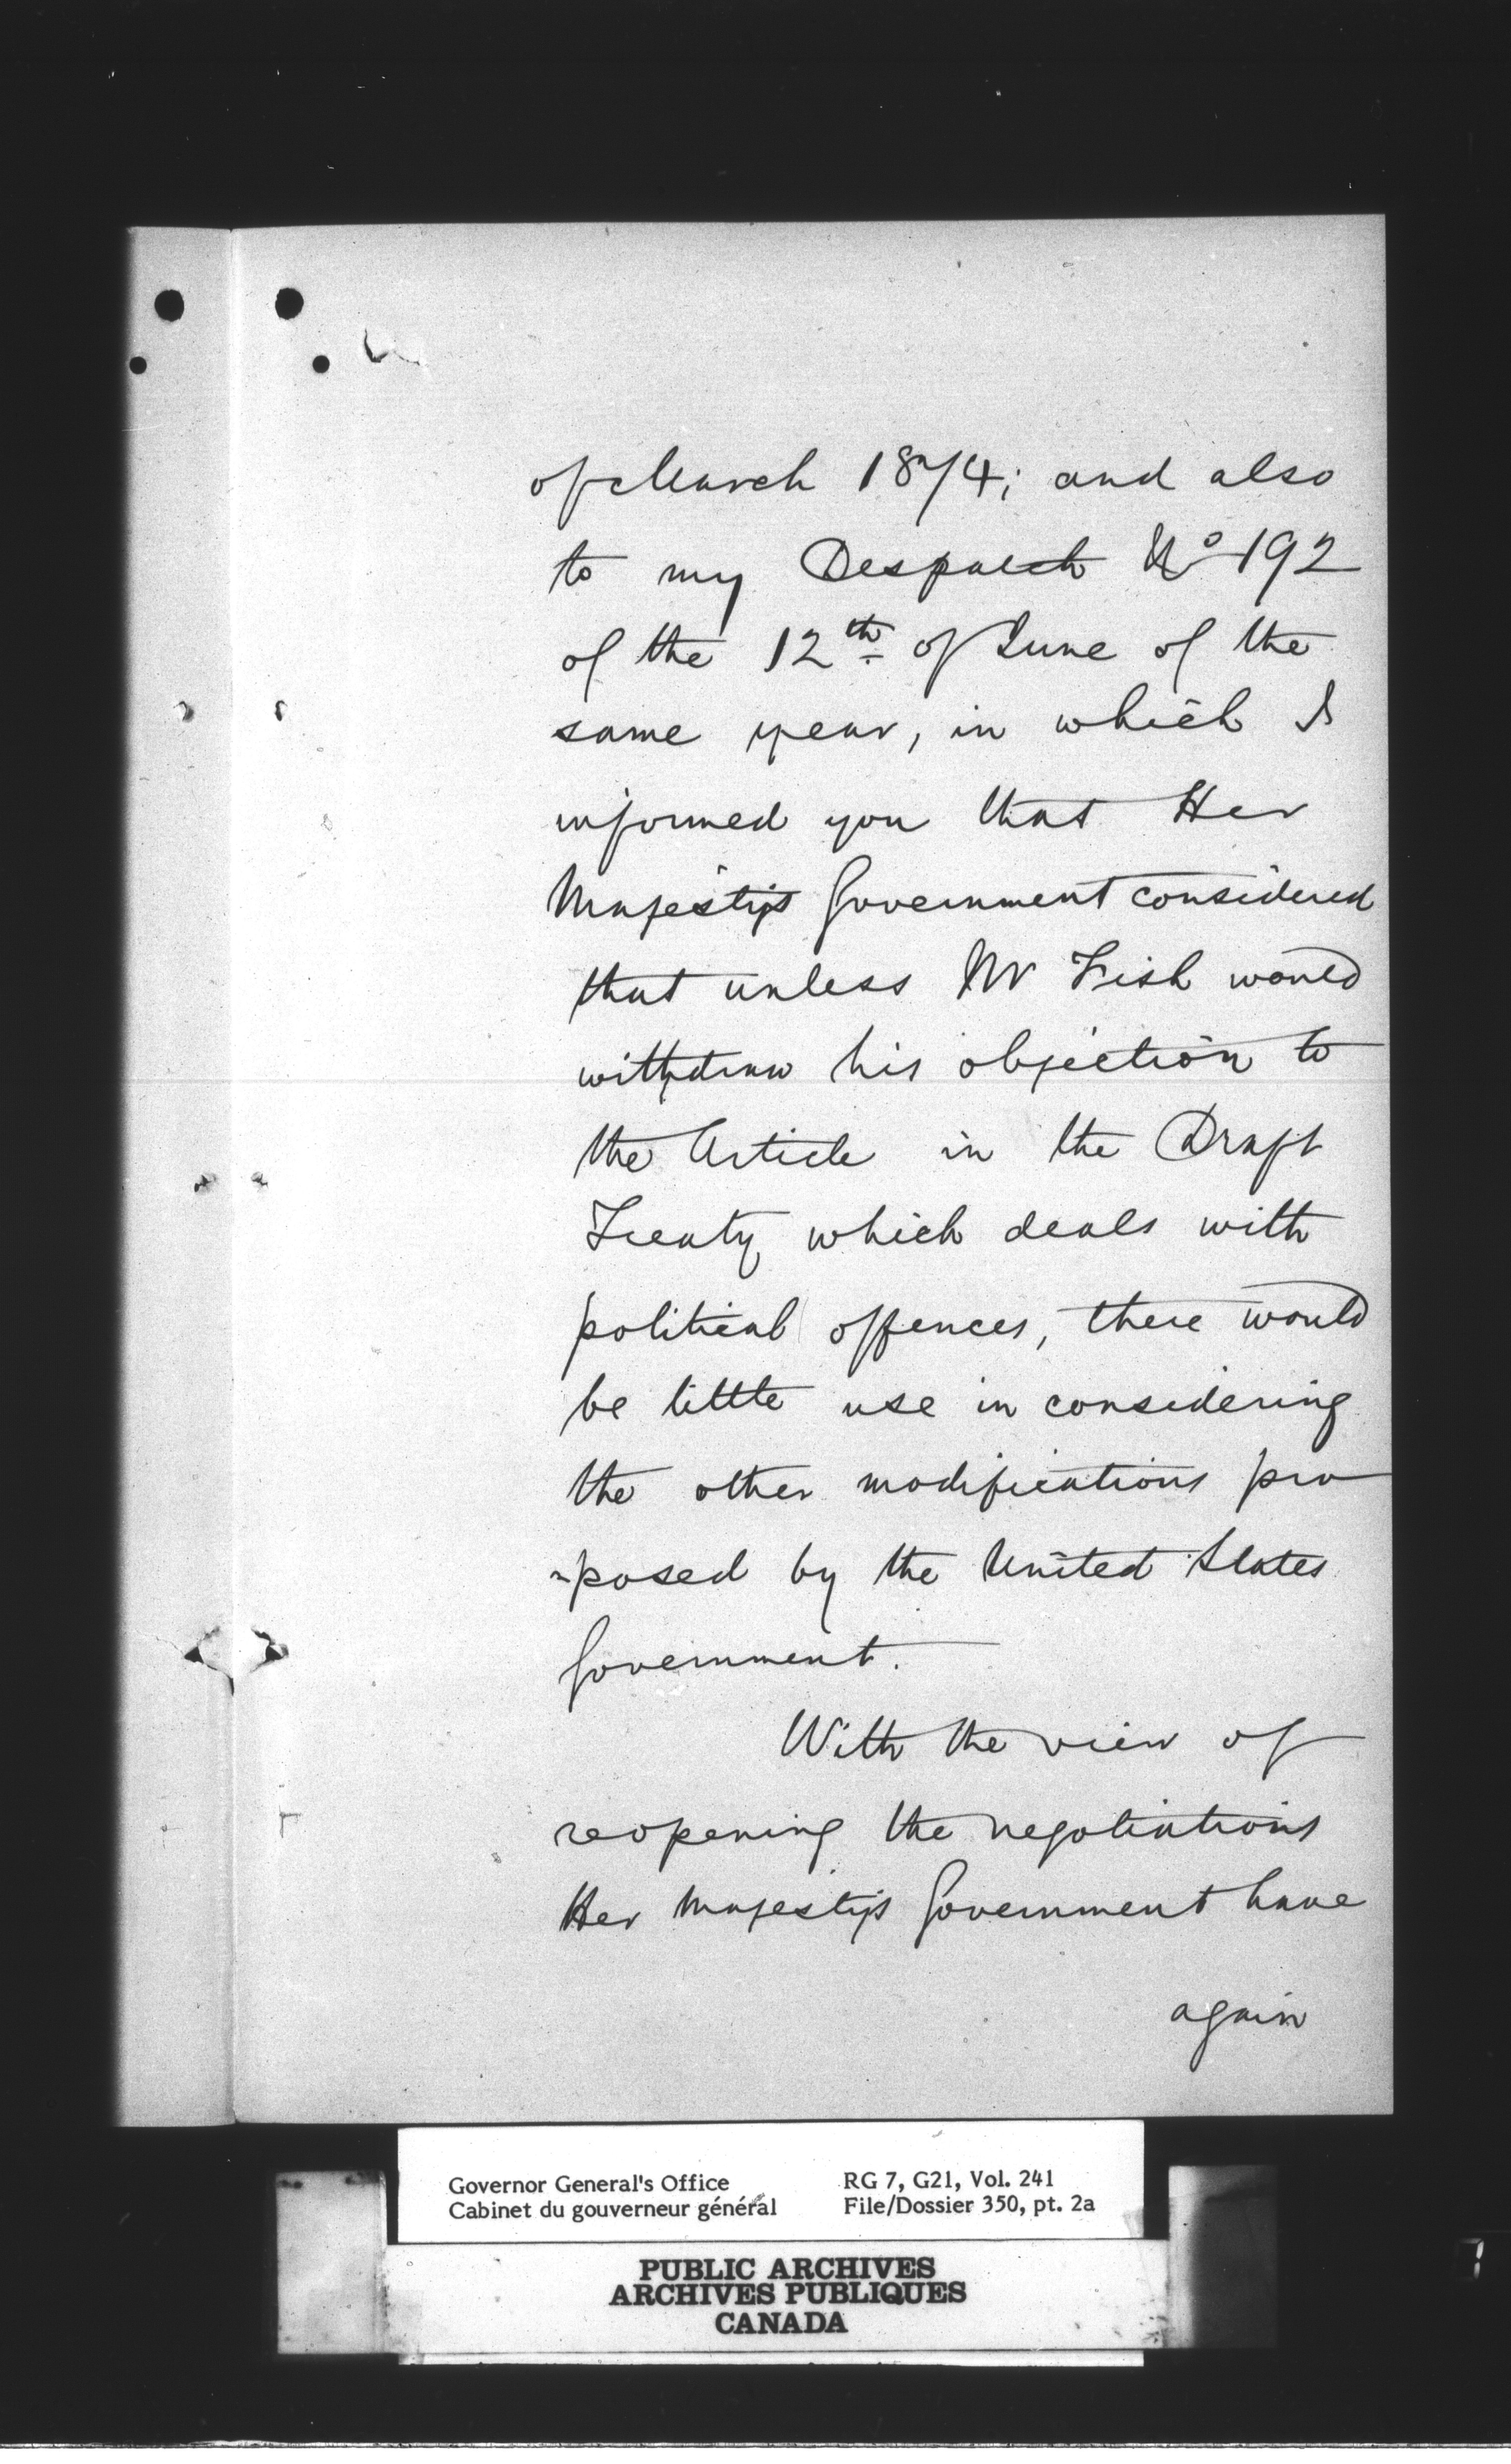 of March 1874; and also
to my Despatch No 192
of the 12th of June of the
same year, in which I
informed you that Her
Majesty's Government considered
that unless Mr Fish would
withdraw his objection to
the Article in the Draft
Treaty which deals with
political offences, there would
be little use in considering
the other modifications pro
-posed by the United States
Government.
With the view of
reopening the negotiations
Her Majesty's Government have
again
Governor General's Office
Cabinet du gouverneur général
RG 7, G21, Vol. 241
File/Dossier 350, pt. 2a
PUBLIC ARCHIVES
ARCHIVES PUBLIQUES
CANADA